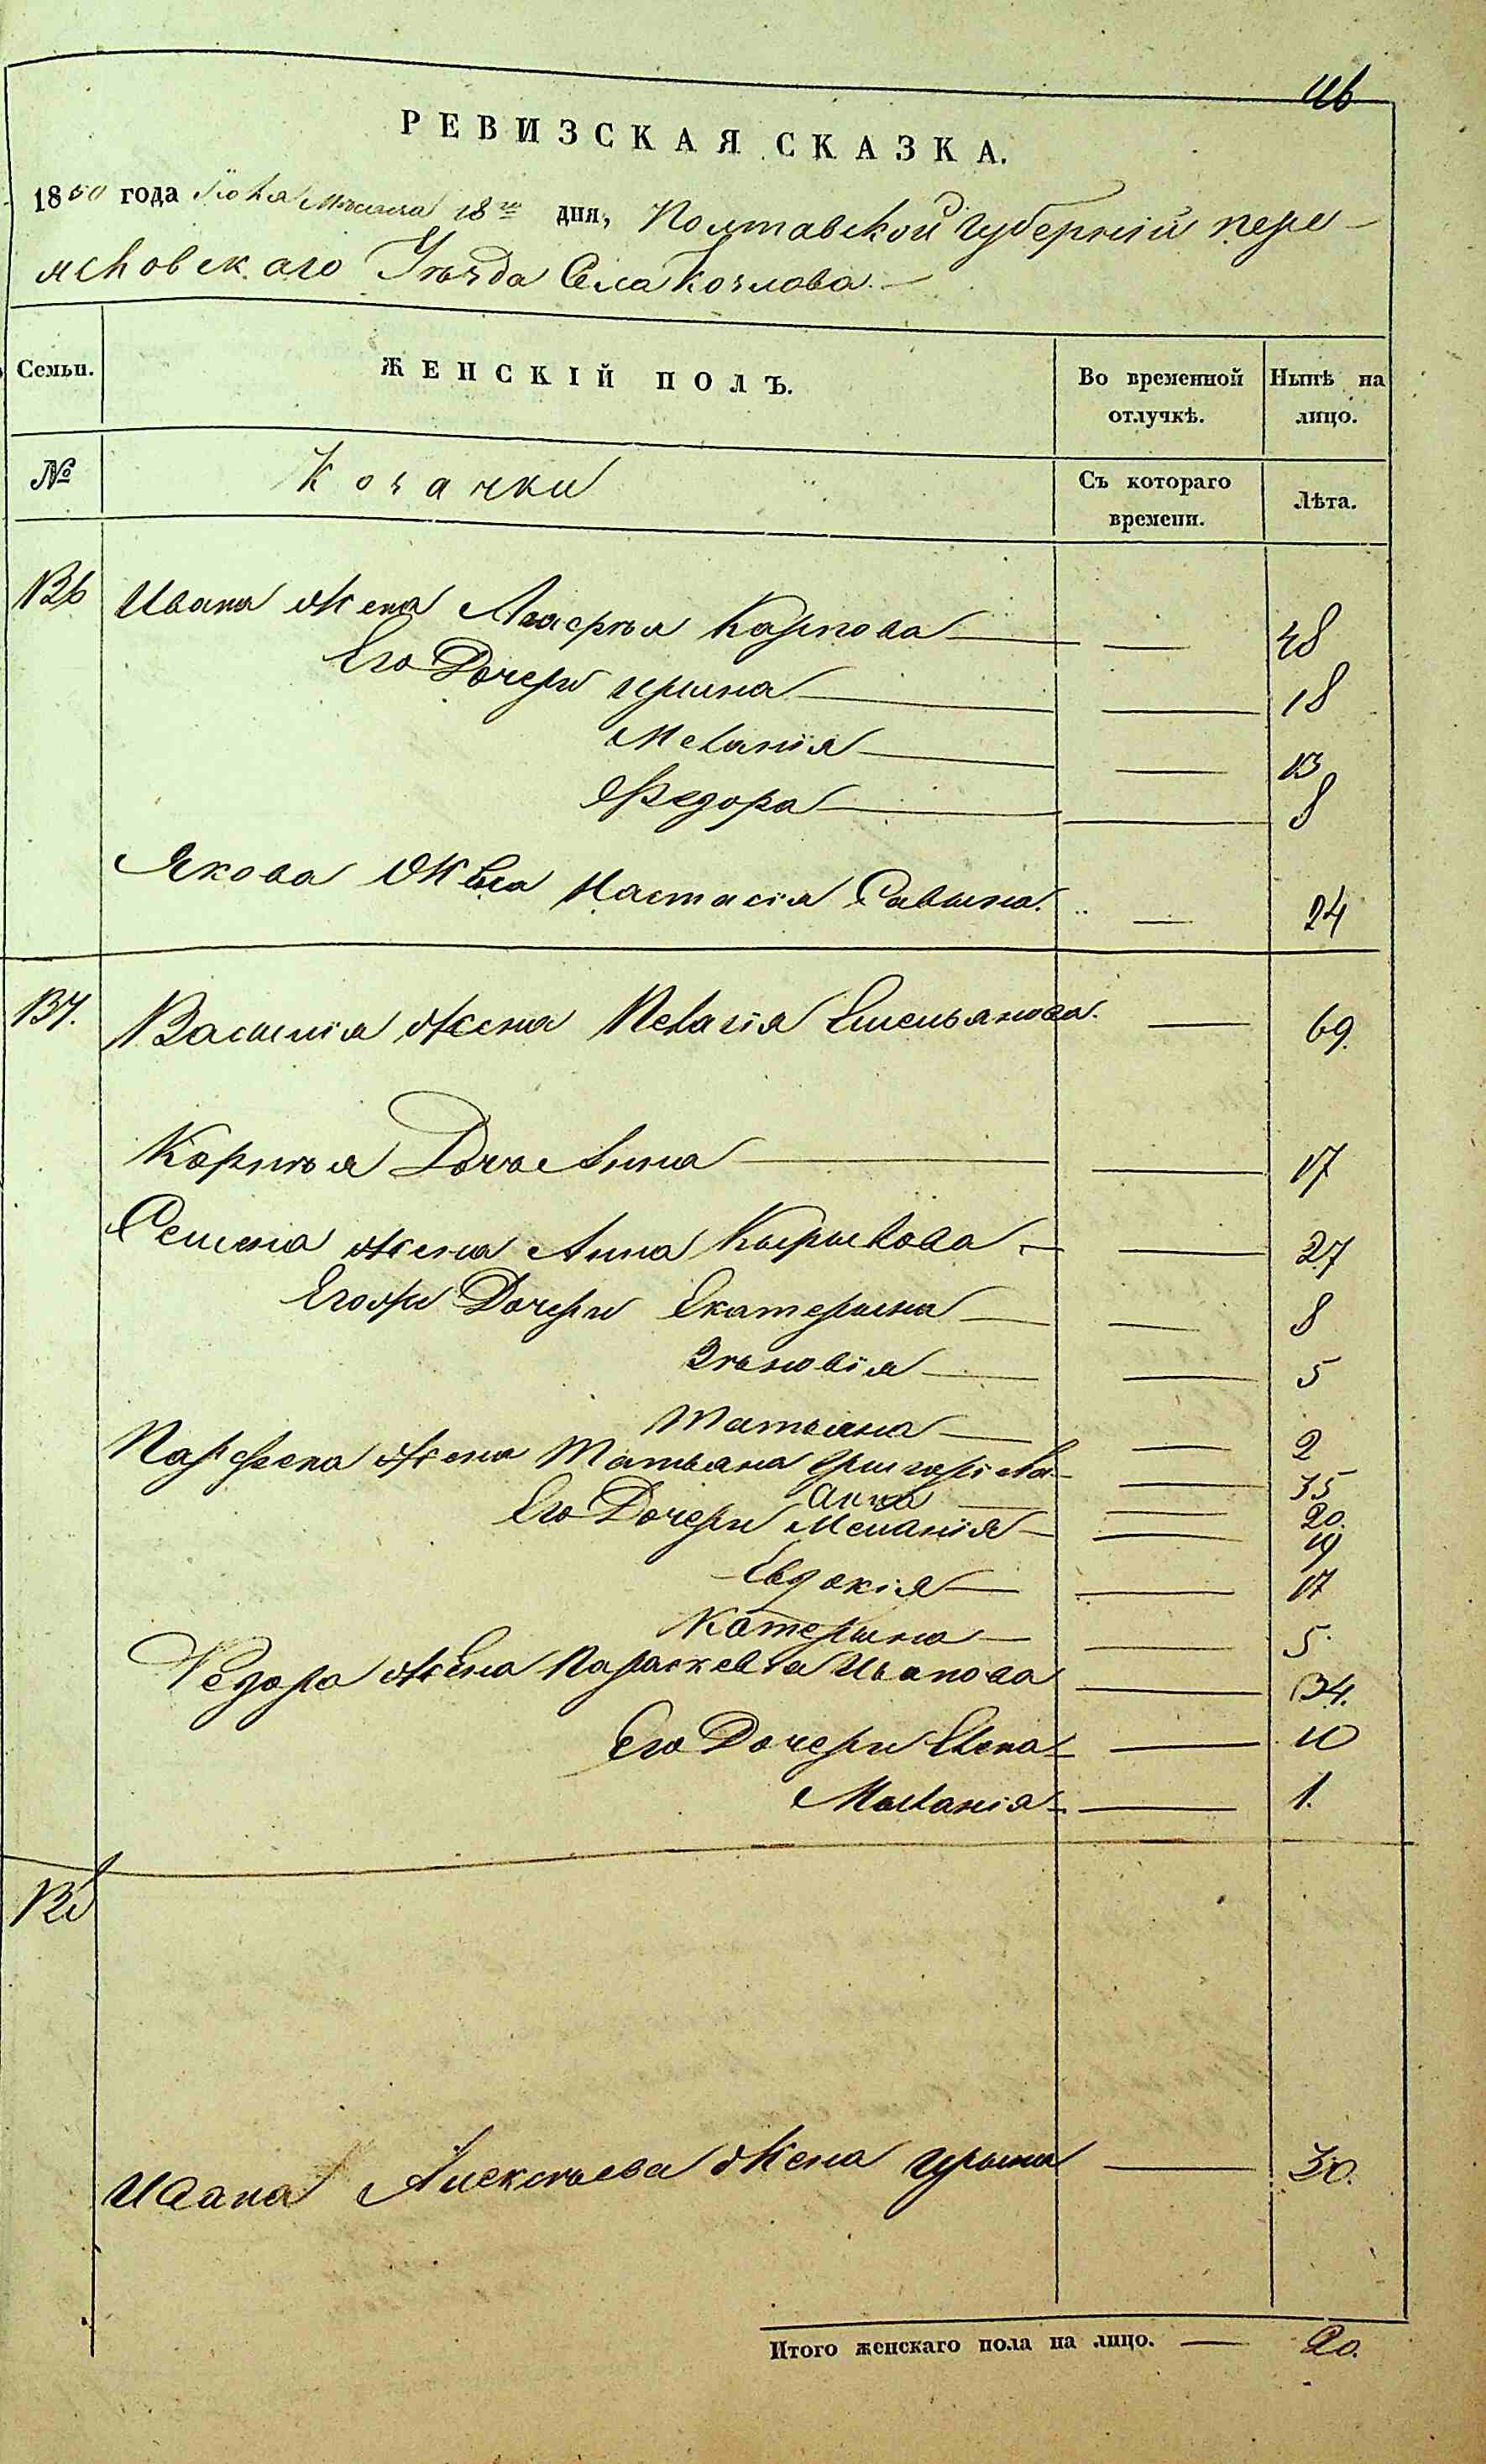 46
РЕВИЗСКАЯ СКАЗКА.
1850 года Июля Месяца 18го дня, Полтавской Губерніи пере-
яславскаго Уѣзда Села Козлова.
Семьи. ЖЕНСКІЙ ПОЛЪ. Во временной отлучкѣ. Нынѣ на лицо.
№ Козачки Съ котораго времени. Лѣта.
136 Ивана жена Карпова — — 48
Его Дочери Ирина — — 18
Меланія — — 13
Федора — — 8
Якова жена Настасія Савина. — 24
137. Василія жена Емельянова. — 69.
Корнѣя Дочь Анна — — 17
Семена жена Анна Кырылова — — 27
Его Дочери Екатерына — — 8
Зѣновія — — 5
Татьяна — — 2
Парфена жена Татьяна Григоріева — — 35
Анна — — 20.
Его Дочери Меланія — — 19
Евдокія — — 17
Катерына — — 5.
Федора жена Параскевia Иванова — 34.
Его Дочери Елена — — 10
Маланія — — 1.
Ивана Алексѣева жена Ирына — 30.
Итого женскаго пола на лицо. — 20.